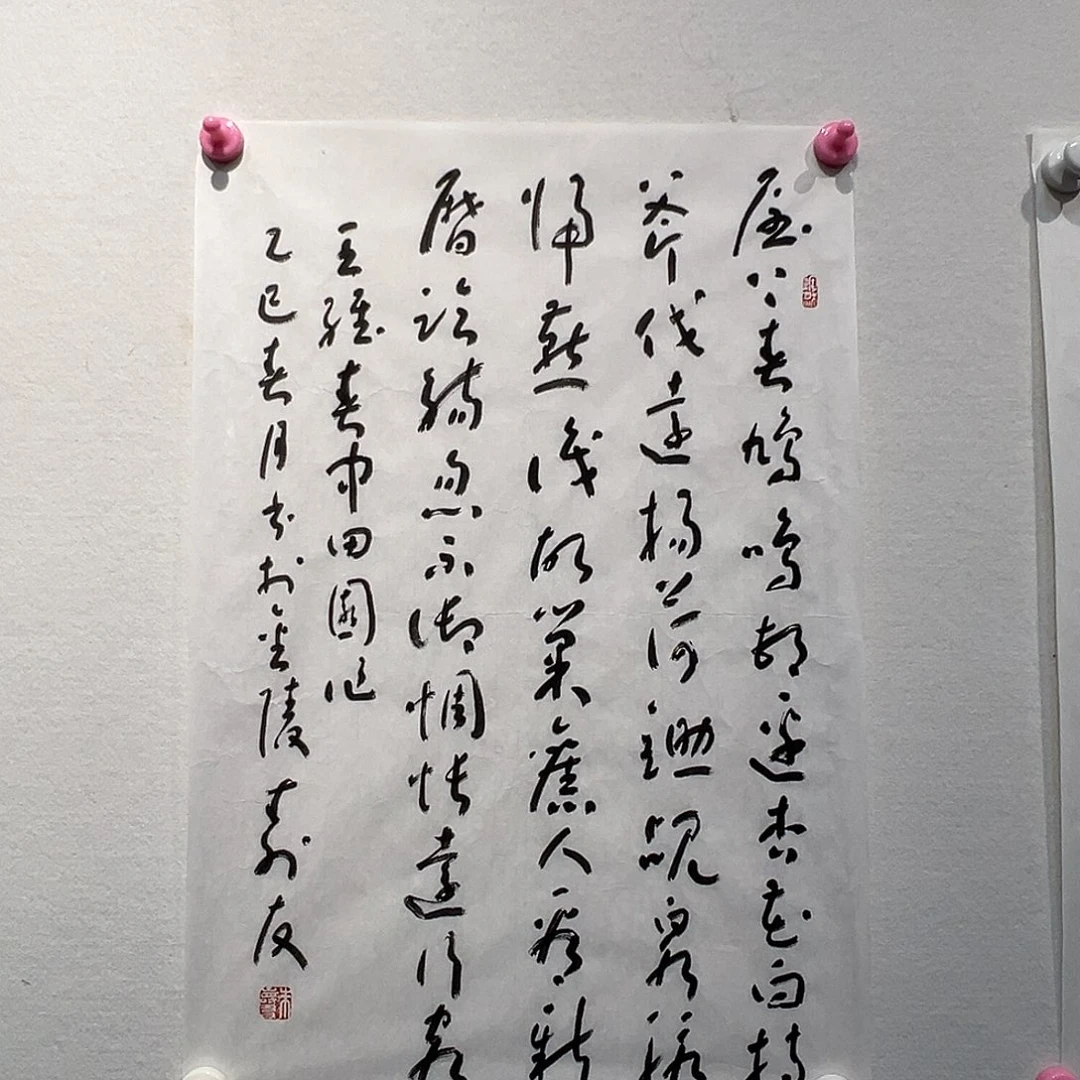 屋上春鳩鳴邨邊杏花白持
斧伐遠揚荷鋤覘泉脈
歸燕識故巢舊人看新
曆臨觴忽不御惆悵遠行客
王維春中田園作
乙巳春月书於金陵寿友